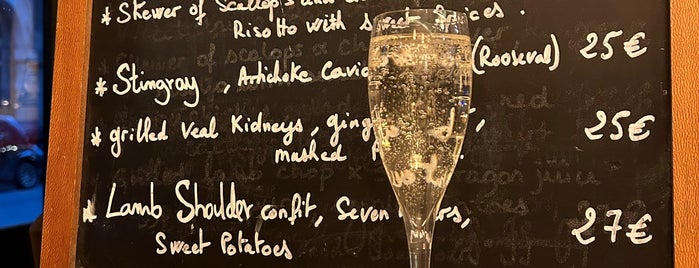 * Skewer of Scallops
Risotto with sweet spices.
* Stingray, Artichoke (Rooseval) 25€
* grilled Veal Kidneys, 25€
mashed
* Lamb Shoulder confit, Seven 27€
Sweet Potatoes